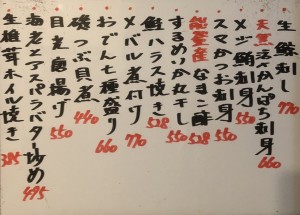 生鯨刺し 770
天然活〆かんぱち刺身 660
メジ鮪刺身 550
スマかつお刺身 550
能登産なまこ酢 528
するめいか丸干し 550
鮭ハラス焼き 528
メバル煮付け 770
おでん七種盛り 660
磯つぶ貝煮 440
目光唐揚げ 550
海老とアスパラバター炒め 495
生椎茸ホイル焼き 385